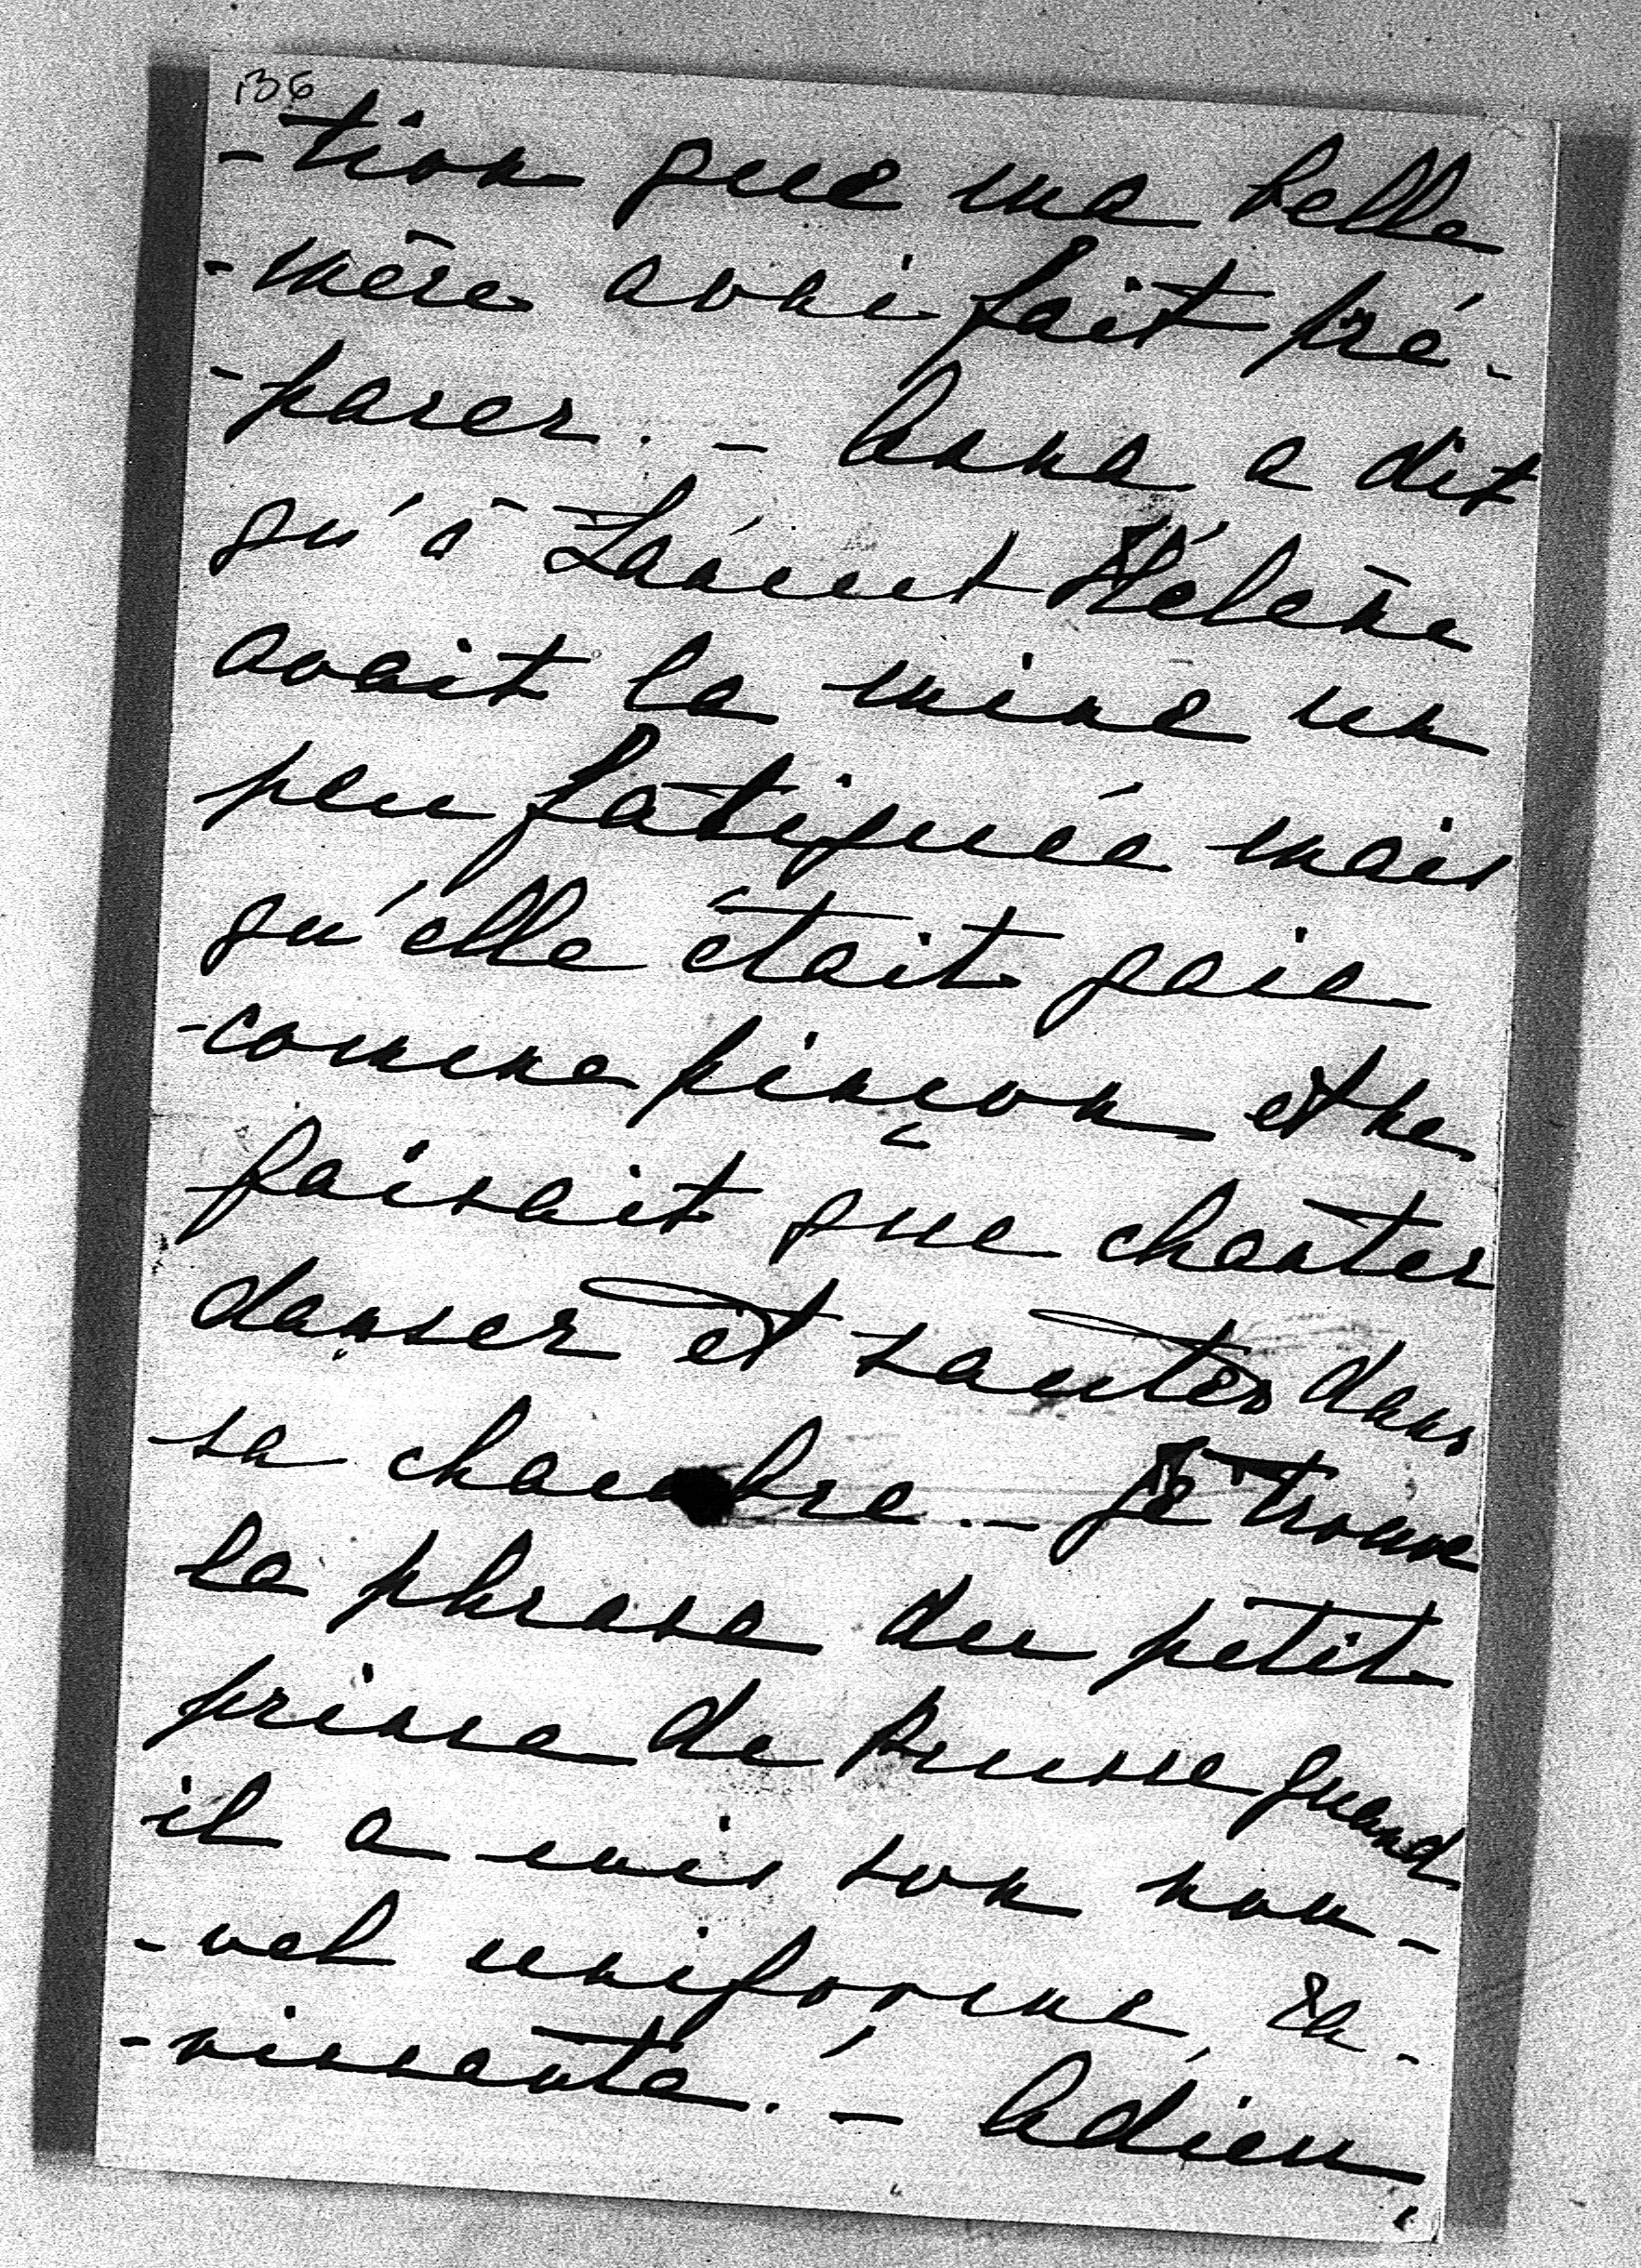 136
-tion que ma belle
-mère avai fait pré-
-parer. - Anna a dit
qu'à Lancut Hélène
avait la mine un
peu fatiguée mais
qu'elle était gaie
-comme pinçon et ne
faisait que chanter
danser et sauter dans
sa chambre. - Je trouve
la phrase du petit
prince de Prusse quand
il a mis son nou-
-vel uniforme, ra-
-vissante. - Adieu,